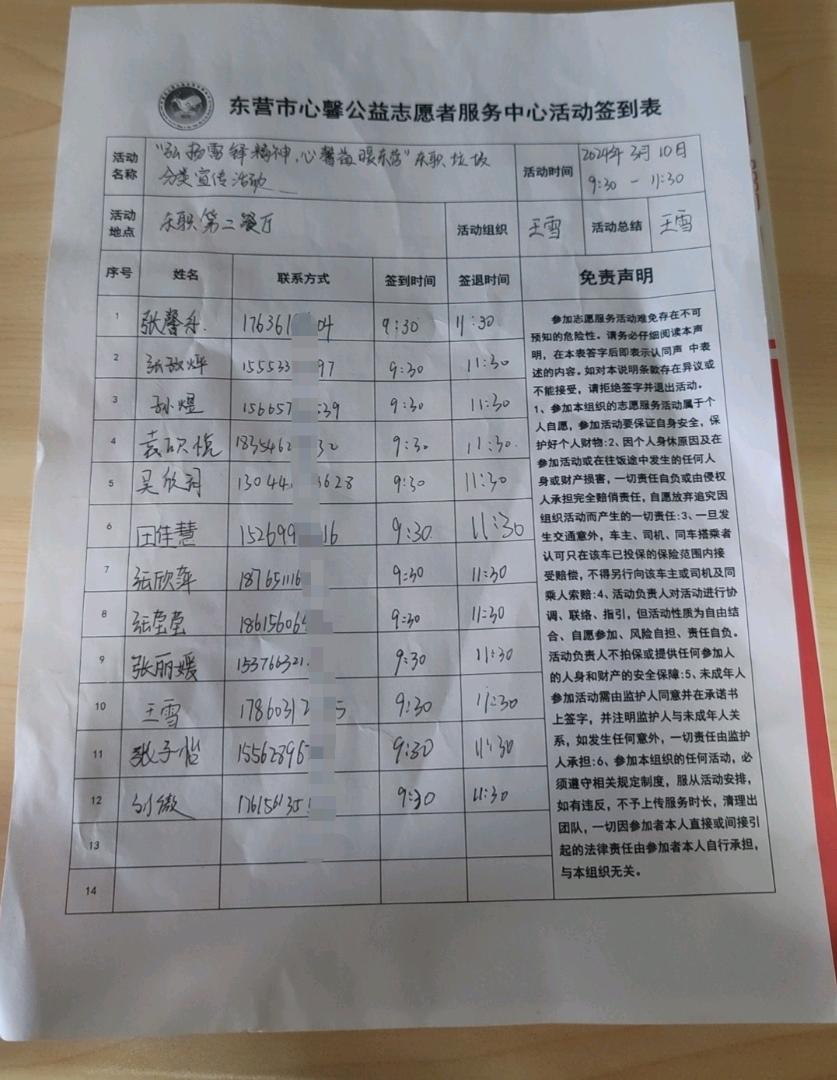 东营市心馨公益志愿者服务中心活动签到表
活动名称 "弘扬雷锋精神,心馨益暖东营"东职垃圾分类宣传活动 活动时间 2024年3月10日 9:30-11:30
活动地点 东职第二餐厅 活动组织 王雪 活动总结 王雪
序号 姓名 联系方式 签到时间 签退时间 免责声明
1 张馨 176361 04 9:30 11:30
2 155533 97 9:30 11:30
3 孙煜 156657 539 9:30 11:30
4 袁 1835462 30 9:30 11:30
5 吴欣 13044 6628 9:30 11:30
6 田佳慧 152699 16 9:30 11:30
7 张欣萍 18765116 9:30 11:30
8 张莹莹 18615606 9:30 11:30
9 张丽媛 153766321 9:30 11:30
10 王雪 17860312 5 9:30 11:30
11 张子怡 15562896 9:30 11:30
12 刘薇 176156135 9:30 11:30
13
14
参加志愿服务活动难免存在不可
预知的危险性。请务必仔细阅读本声
明,在本表答字后即表示认同声 中表
述的内容。如对本说明条款存在异议或
不能接受,请拒绝签字并退出活动。
1、参加本组织的志愿服务活动属于个
人自愿,参加活动要保证自身安全,保
护好个人财物:2、因个人身休原因及在
参加活动或在往饭途中发生的任何人
身或财产损害,一切责任自负或由侵权
人承担完全赔俏责任,自愿放弃追究因
组织活动而产生的一切责任:3、一旦发
生交通意外,车主、司机、同车搭乘者
认可只在该车已投保的保险范围内接
受赔偿,不得另行向该车主或司机及同
乘人索赔:4、活动负责人对活动进行协
调、联络、指引,但活动性质为自由结
合、自愿参加、风险自担、责任自负。
活动负责人不拍保或提供任何参加人
的人身和财产的安全保障:5、未成年人
参加活动需由监护人同意并在承诺书
上签字,并注明监护人与未成年人关
系,如发生任何意外,一切责任由监护
人承担:6、参加本组织的任何活动,必
须遵守相关规定制度,服从活动安排,
如有违反,不予上传服务时长,清理出
团队,一切因参加者本人直接或间接引
起的法律责任由参加者本人自行承担,
与本组织无关。